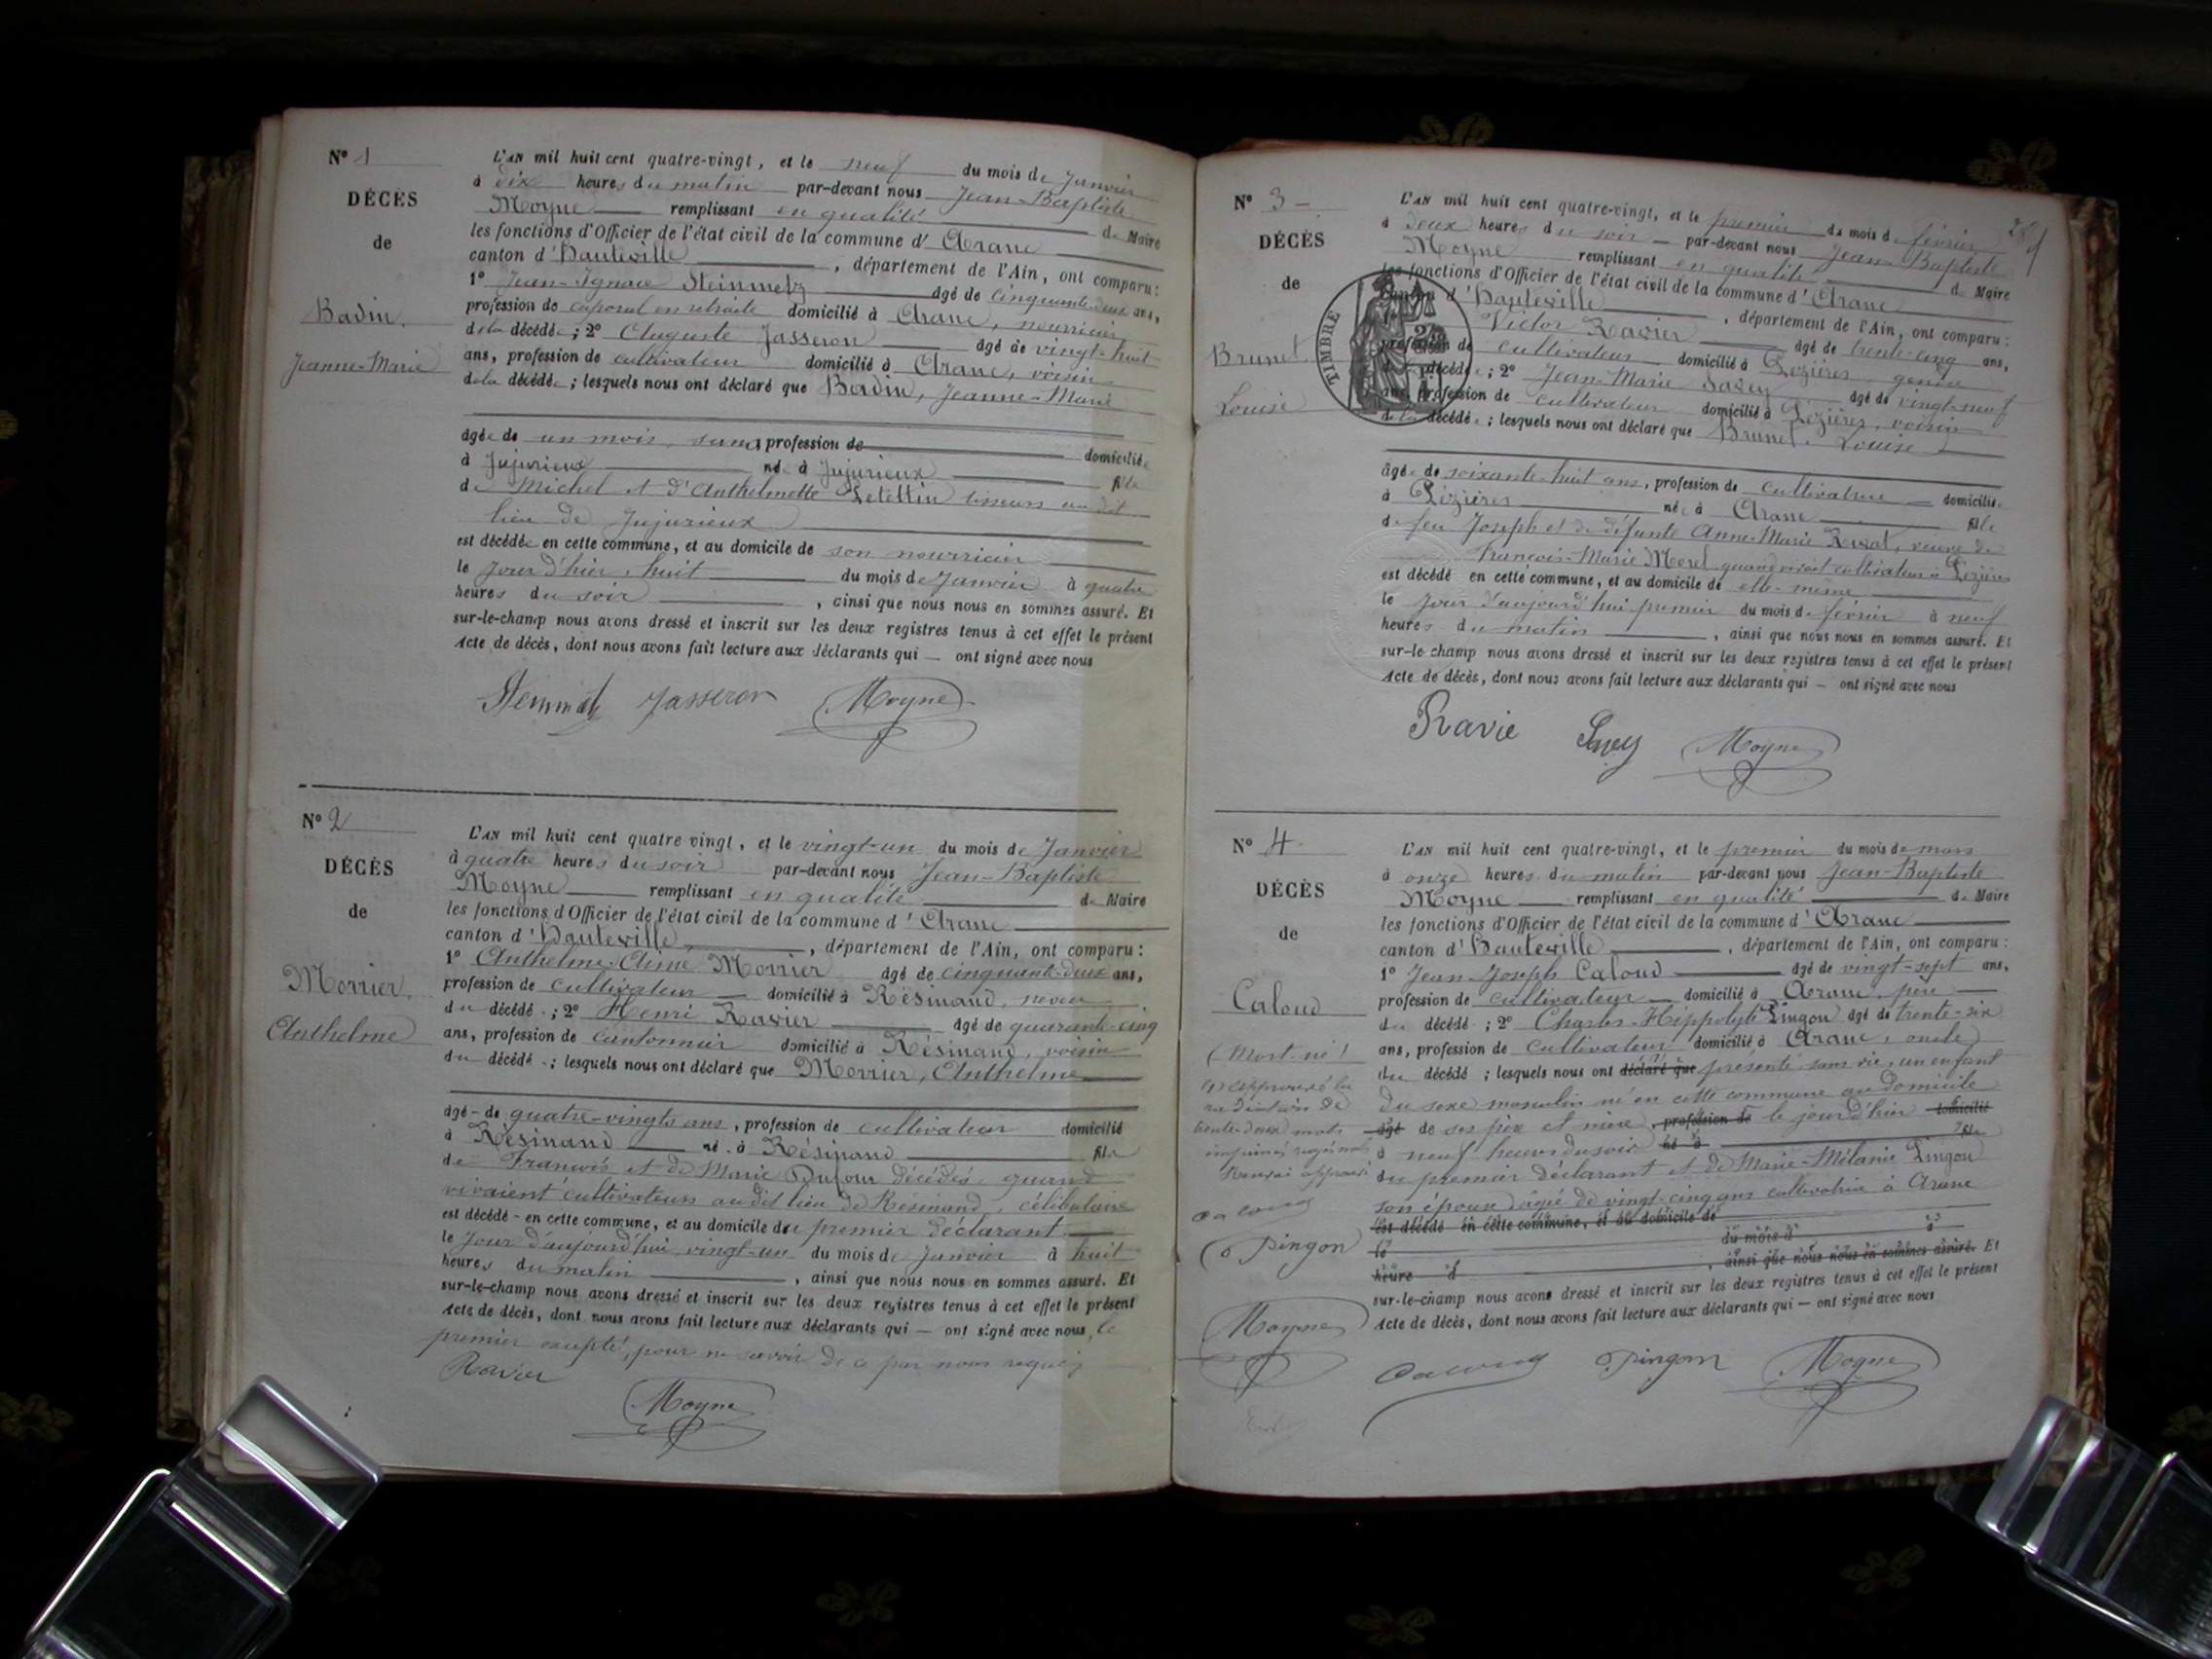 N° 1
DÉCÈS
de
Badin,
Jeanne-Marie
L'AN mil huit cent quatre-vingt, et le neuf du mois de Janvier
à dix heures du matin par-devant nous Jean-Baptiste
Moyne remplissant en qualité de Maire
les fonctions d'Officier de l'état civil de la commune d' Arane
canton d'Hauteville, département de l'Ain, ont comparu:
1° Jean-Ignace Steinmetz âgé de cinquante-deux ans,
profession de caporal en retraite domicilié à Arane, nourricier
de la décédée; 2° Auguste Jasseron âgé de vingt-huit
ans, profession de cultivateur domicilié à Arane, voisin
de la décédée; lesquels nous ont déclaré que Badin, Jeanne-Marie
âgée de un mois, sans profession de domiciliée
à Jujurieux née à Jujurieux fille
de Michel et d'Anthelmette tisseurs au dit
lieu de Jujurieux
est décédée en cette commune, et au domicile de son nourricier
le jour d'hier, huit du mois de Janvier à quatre
heures du soir, ainsi que nous nous en sommes assuré. Et
sur-le-champ nous avons dressé et inscrit sur les deux registres tenus à cet effet le présent
Acte de décès, dont nous avons fait lecture aux déclarants qui — ont signé avec nous
Jasseron Moyne
N° 2
DÉCÈS
de
Morrier,
Anthelme
L'AN mil huit cent quatre vingt, et le vingt-un du mois de Janvier
à quatre heures du soir par-devant nous Jean-Baptiste
Moyne remplissant en qualité de Maire
les fonctions d'Officier de l'état civil de la commune d' Arane
canton d'Hauteville, département de l'Ain, ont comparu:
1° Anthelme-Aimé Morrier âgé de cinquante-deux ans,
profession de cultivateur domicilié à Résinand, neveu
du décédé; 2° Henri Ravier âgé de quarante-cinq
ans, profession de cantonnier domicilié à Résinand, voisin
du décédé; lesquels nous ont déclaré que Morrier, Anthelme
âgé de quatre-vingts ans, profession de cultivateur domicilié
à Résinand né à Résinand fils
de François et de Marie Dufour décédés, quand
vivaient cultivateurs au dit lieu de Résinand, célibataire
est décédé en cette commune, et au domicile du premier déclarant
le jour d'aujourd'hui vingt-un du mois de Janvier à huit
heures du matin, ainsi que nous nous en sommes assuré. Et
sur-le-champ nous avons dressé et inscrit sur les deux registres tenus à cet effet le présent
Acte de décès, dont nous avons fait lecture aux déclarants qui — ont signé avec nous, le
premier excepté, pour ne savoir de ce par nous requis
Ravier
Moyne
N° 3
DÉCÈS
de
Brunet
Louise
TIMBRE
L'AN mil huit cent quatre-vingt, et le premier du mois de février
à deux heures du soir par-devant nous Jean-Baptiste
Moyne remplissant en qualité de Maire
les fonctions d'Officier de l'état civil de la commune d' Arane
canton d'Hauteville, département de l'Ain, ont comparu:
Victor Ravier âgé de trente-cinq ans,
profession de cultivateur domicilié à Pézières gendre
décédée; 2° Jean-Marie Savey âgé de vingt-neuf
ans, profession de cultivateur domicilié à Pézières, voisin
de la décédée; lesquels nous ont déclaré que Brunet, Louise
âgée de soixante-huit ans, profession de cultivatrice domiciliée
à Pézières née à Arane fille
de feu Joseph et de défunte Anne-Marie veuve de
François-Marie Morel quand vivait cultivateur à Pézières
est décédé en cette commune, et au domicile de elle-même
le jour d'aujourd'hui premier du mois de février à neuf
heures du matin, ainsi que nous nous en sommes assuré. Et
sur-le champ nous avons dressé et inscrit sur les deux registres tenus à cet effet le présent
Acte de décès, dont nous avons fait lecture aux déclarants qui — ont signé avec nous
Ravie Moyne
N° 4
DÉCÈS
de
Caloud
(Mort-né)
approuvé la
radiation de
trente-deux mots
imprimés
approuvé
pingon
Moyne
L'AN mil huit cent quatre-vingt, et le premier du mois de mars
à onze heures du matin par-devant nous Jean-Baptiste
Moyne remplissant en qualité de Maire
les fonctions d'Officier de l'état civil de la commune d' Arane
canton d'Hauteville, département de l'Ain, ont comparu:
1° Jean-Joseph Caloud âgé de vingt-sept ans,
profession de cultivateur domicilié à Arane, père
du décédé; 2° Charles-Hippolyte Pingon âgé de trente-six
ans, profession de cultivateur domicilié à Arane, oncle
du décédé; lesquels nous ont déclaré que présenté sans vie, un enfant
du sexe masculin né en cette commune au domicile
âgé de ses père et mère, profession de le jour d'hier domicilié
à neuf heures du soir né à fils
du premier déclarant et de Marie-Mélanie Pingon
son épouse âgée de vingt-cinq ans cultivatrice à Arane
est décédé en cette commune, et au domicile de
le du mois d à
heure d, ainsi que nous nous en sommes assuré. Et
sur-le-champ nous avons dressé et inscrit sur les deux registres tenus à cet effet le présent
Acte de décès, dont nous avons fait lecture aux déclarants qui — ont signé avec nous
pingon Moyne